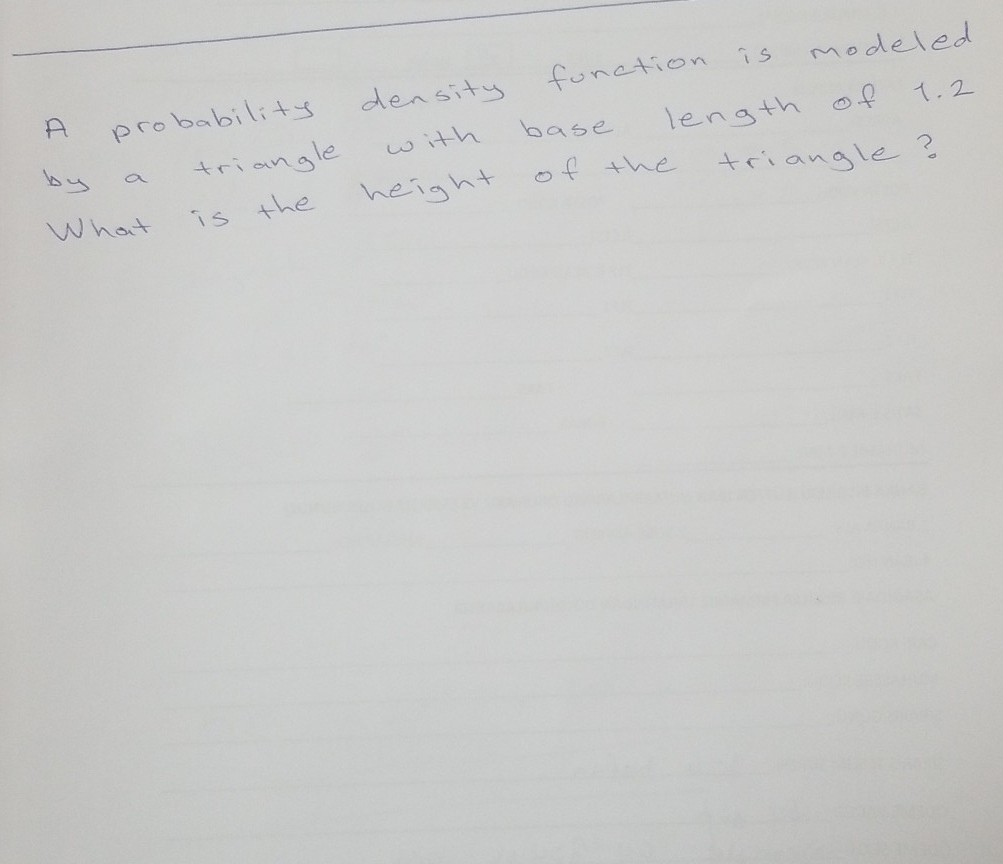 A probability density function is modeled
by a triangle with base length of 1.2
What is the height of the triangle?